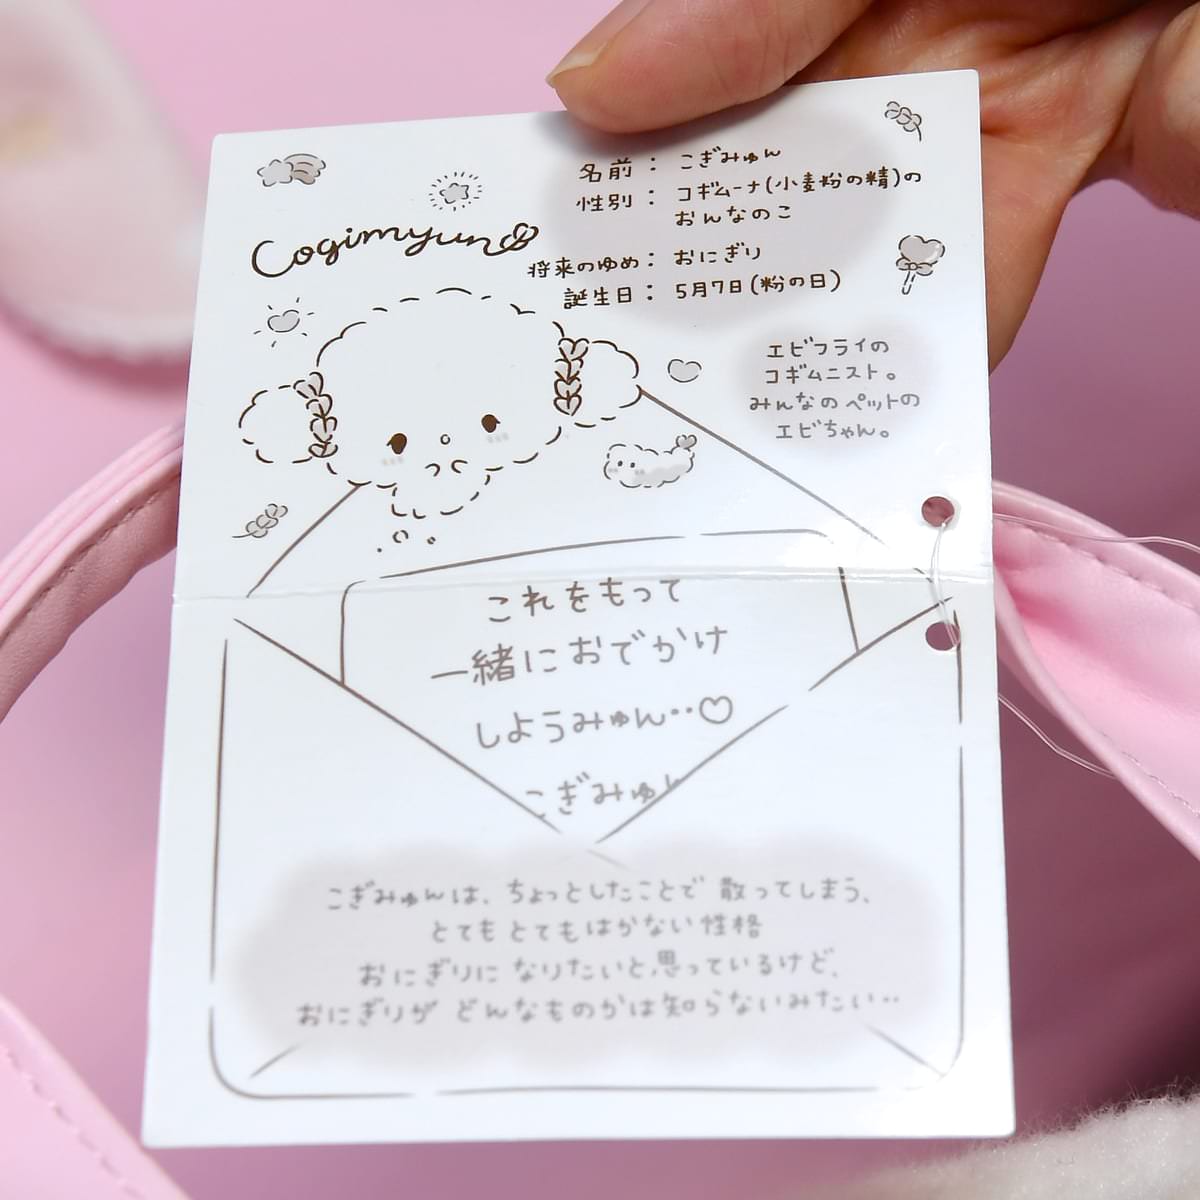 Cogimyun
名前： こぎみゅん
性別： コギムーナ(小麦粉の精)の
おんなのこ
将来のゆめ： おにぎり
誕生日： 5月7日(粉の日)
エビフライの
コギムニスト。
みんなのペットの
エビちゃん。
これをもって
一緒におでかけ
しようみゅん‥♡
こぎみゅん
こぎみゅんは、ちょっとしたことで 散ってしまう、
とてもとてもはかない性格
おにぎりに なりたいと思っているけど、
おにぎりが どんなものかは知らないみたい‥